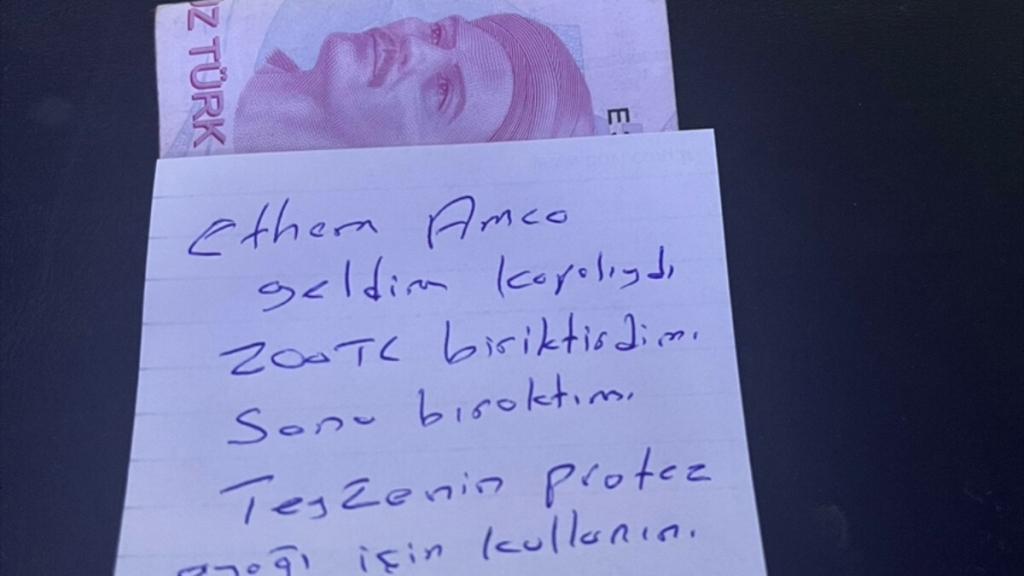 UZ TÜRK
E
Ethem Amca
geldim kapalıydı
200TL biriktirdim.
Sana bıraktım.
Teyzenin protez
ayağı için kullanın.